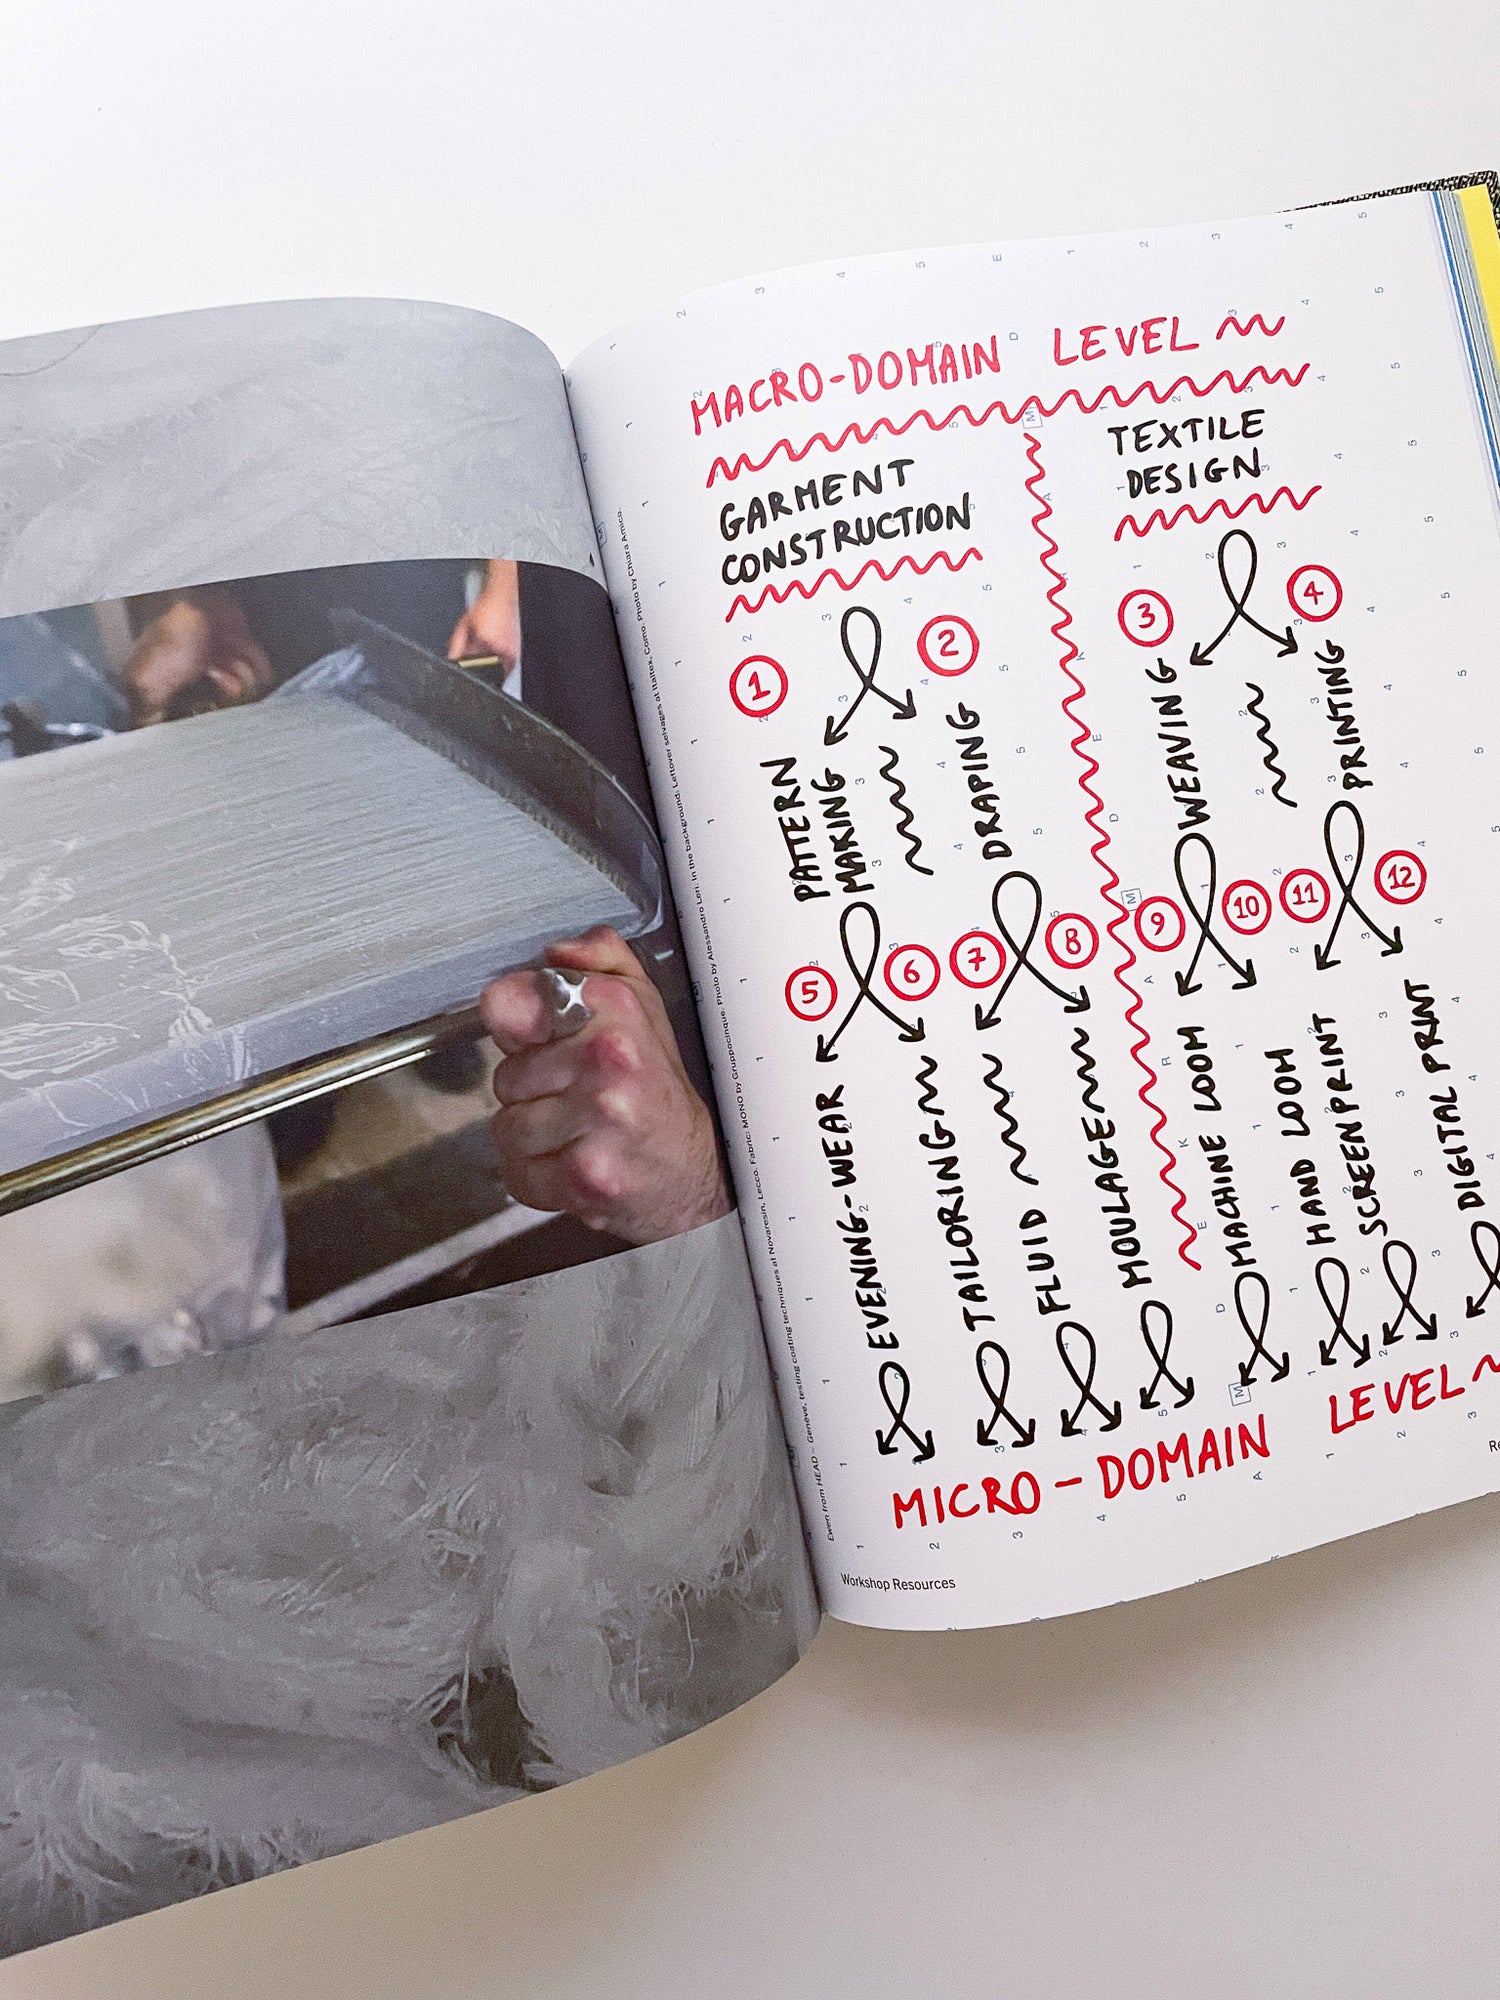 MACRO-DOMAIN LEVEL
GARMENT
CONSTRUCTION
TEXTILE
DESIGN
1
2
3
4
PATTERN
MAKING
DRAPING
WEAVING
PRINTING
5
6
7
8
9
10
11
12
EVENING-WEAR
TAILORING
FLUID
MOULAGE
MACHINE LOOM
HAND LOOM
SCREENPRINT
DIGITAL PRINT
MICRO-DOMAIN LEVEL
Ewen from HEAD – Genève, testing coating techniques at Novaresin, Lecco. Fabric: MONO by Gruppocinque. Photo by Alessandro Lori. In the background: Leftover selvages at Italtex, Como. Photo by Chiara Amico.
Workshop Resources